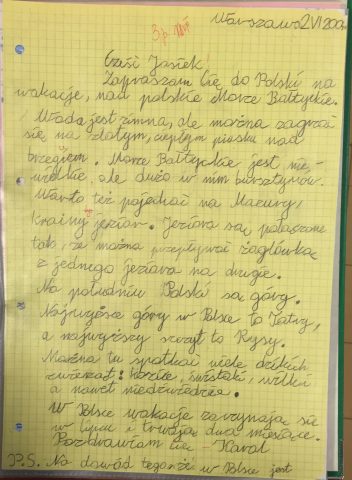 Warszawa 2 VI 200
3p.
Cześć Jasiek!
Zapraszam Cię do Polski na
wakacje, nad polskie Morze Bałtyckie.
Woda jest zimna, ale można zagrzać
się na złotym, ciepłym piasku nad
brzegiem. Morze Bałtyckie jest nie-
wielkie, ale dużo w nim bursztynów.
Warto też pojechać na Mazury,
Krainę jezior. Jeziora są połączone
tak, że można przepływać żaglówką
z jednego jeziora na drugie.
Na południu Polski są góry.
Najwyższe góry w Polsce to Tatry,
a najwyższy szczyt to Rysy.
Można tu spotkać wiele dzikich
zwierząt: kozice, świstaki, wilki
a nawet niedźwiedzie.
W Polsce wakacje zaczynają się
w lipcu i trwają dwa miesiące.
Pozdrawiam Cię - Karol
P.S. Na dowód tego, że w Polsce jest